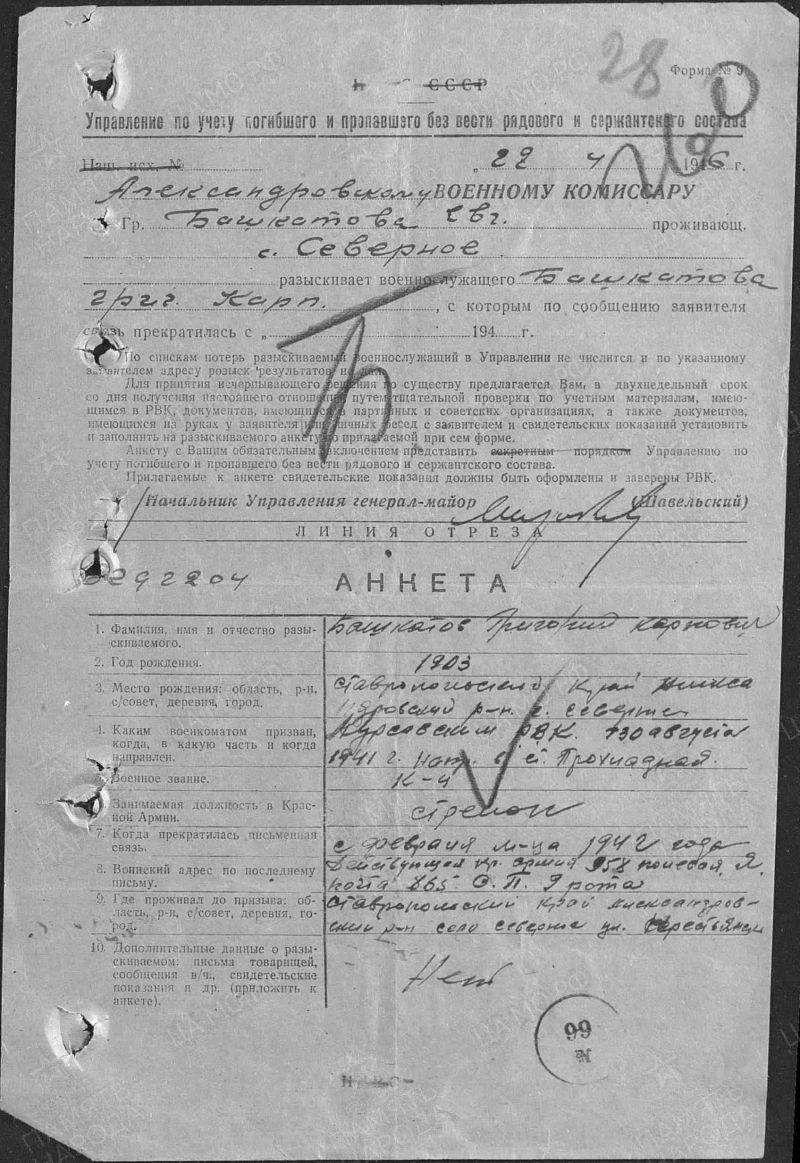 28
Форма № 9
СССР
Управление по учету погибшего и пропавшего без вести рядового и сержантского состава
Наш. исх. № „ 22 4 1946 г.
Александровскому ВОЕННОМУ КОМИССАРУ
Гр. Башкатова Евг. проживающ.
с. Северное
разыскивает военнослужащего Башкатова
Григ. Карп. , с которым по сообщению заявителя
связь прекратилась с „ 194 г.
По спискам потерь разыскиваемый военнослужащий в Управлении не числится и по указанному
заявителем адресу розыск результатов не дал.
Для принятия исчерпывающего решения по существу предлагается Вам, в двухнедельный срок
со дня получения настоящего отношения путем тщательной проверки по учетным материалам, имею-
щимся в РВК, документов, имеющихся в партийных и советских организациях, а также документов,
имеющихся на руках у заявителя и личных бесед с заявителем и свидетельских показаний установить
и заполнить на разыскиваемого анкету по прилагаемой при сем форме.
Анкету с Вашим обязательным заключением представить секретным порядком Управлению по
учету погибшего и пропавшего без вести рядового и сержантского состава.
Прилагаемые к анкете свидетельские показания должны быть оформлены и заверены РВК.
Начальник Управления генерал-майор (Шавельский)
ЛИНИЯ ОТРЕЗА
АНКЕТА
1. Фамилия, имя и отчество разы-
скиваемого.
Башкатов Григорий Карпович
2. Год рождения.
1903
3. Место рождения: область, р-н,
с/совет, деревня, город.
Ставропольский Край Алекса
ндровский р-н. с. Северное
4. Каким военкоматом призван,
когда, в какую часть и когда
направлен.
Курсавским РВК. 30 августа
1941 г. Напр. в ст. Прохладная.
5. Военное звание.
К-ц
6. Занимаемая должность в Крас-
ной Армии.
стрелок
7. Когда прекратилась письменная
связь.
с февраля м-ца 1942 года
8. Воинский адрес по последнему
письму.
Действующая кр. армия 958 полевая
почта 865 С. П. 9 рота
9. Где проживал до призыва: об-
ласть, р-н, с/совет, деревня, го-
род.
Ставропольский край Александров-
ский р-н село северное ул.
10. Дополнительные данные о разы-
скиваемом: письма товарищей,
сообщения в/ч., свидетельские
показания и др. (приложить к
анкете).
Нет
99
№